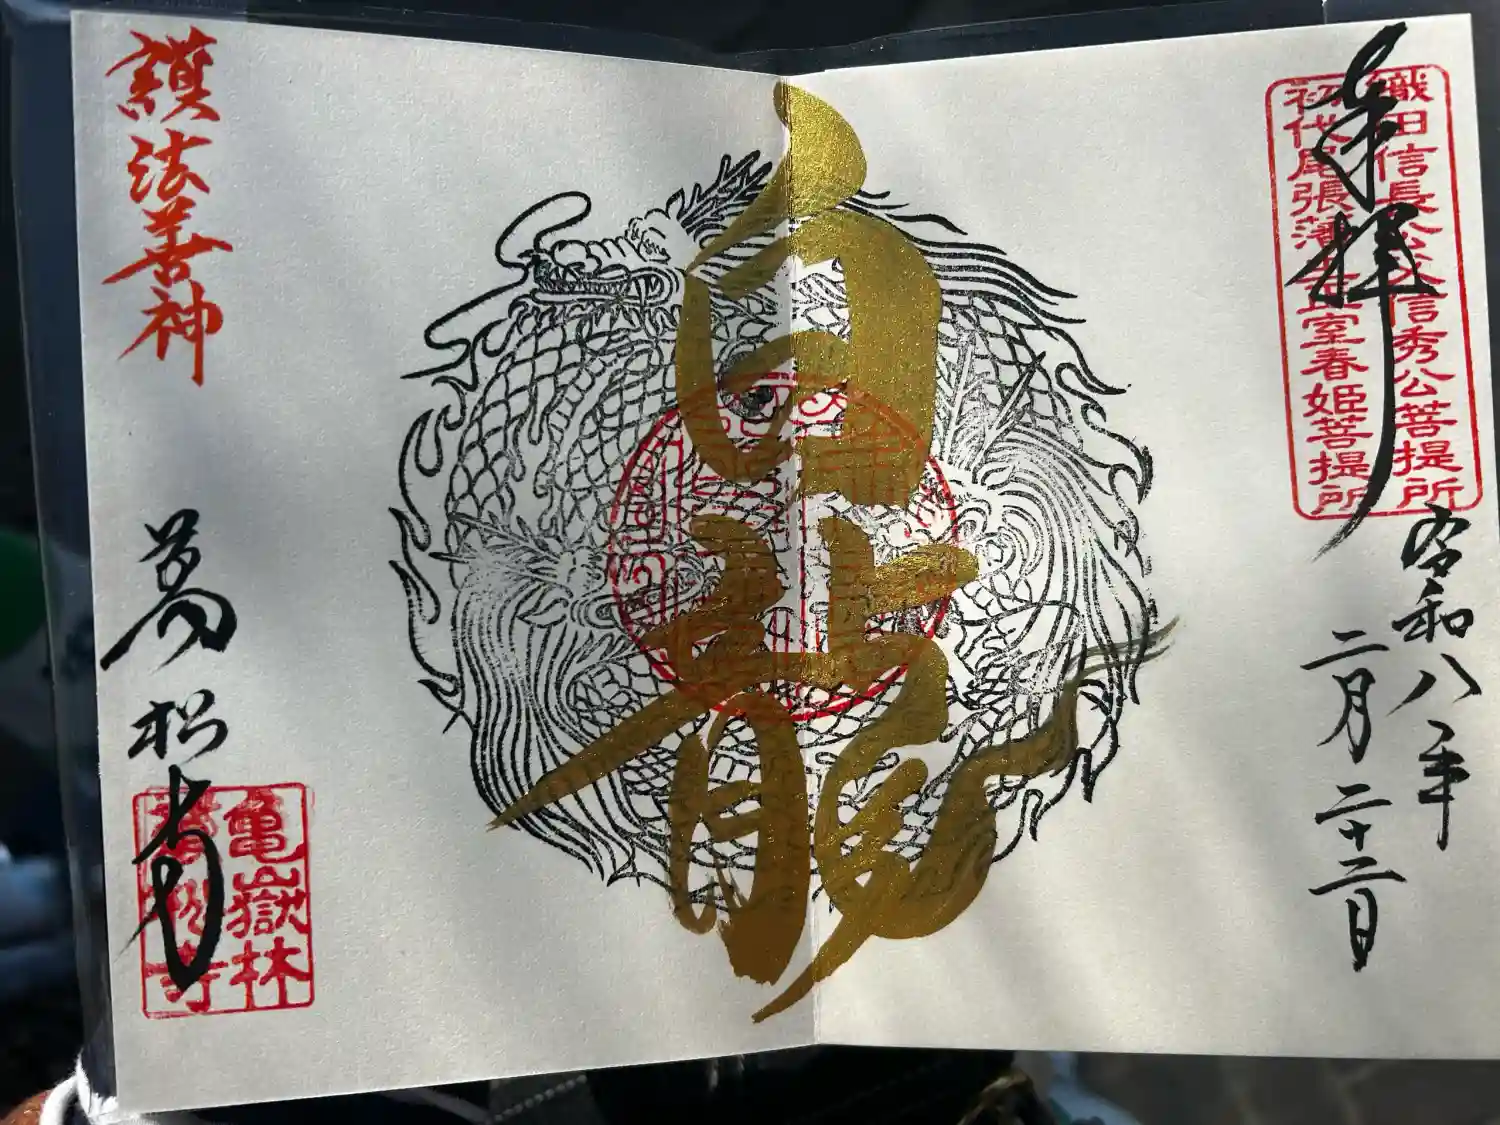 奉拝
織田信長公父信秀公菩提所
初代尾張藩主正室春姫菩提所
令和八年
二月二十二日
白龍
護法善神
萬松寺
亀嶽林
萬松寺